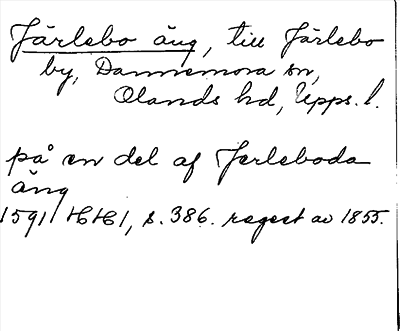 Järlebo äng, till Järlebo
by, Dannemora sn,
Olands hd, Upps. l.
på en del af Jerleboda
äng
1591 HH1, s. 386. regest av 1855.